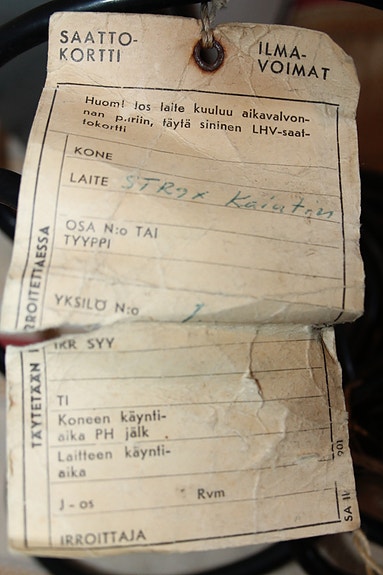 SAATTO-
KORTTI
ILMA-
VOIMAT
Huom! Jos laite kuuluu aikavalvon-
nan piiriin, täytä sininen LHV-saat-
tokortti
KONE
LAITE STR9x Kaiutin
OSA N:o TAI
TYYPPI
YKSILÖ N:o
IRR SYY
TI
Koneen käynti-
aika PH jälk
Laitteen käynti-
aika
J-os Rvm
IRROITTAJA
TÄYTETÄÄN IRROITETTAESSA
SA